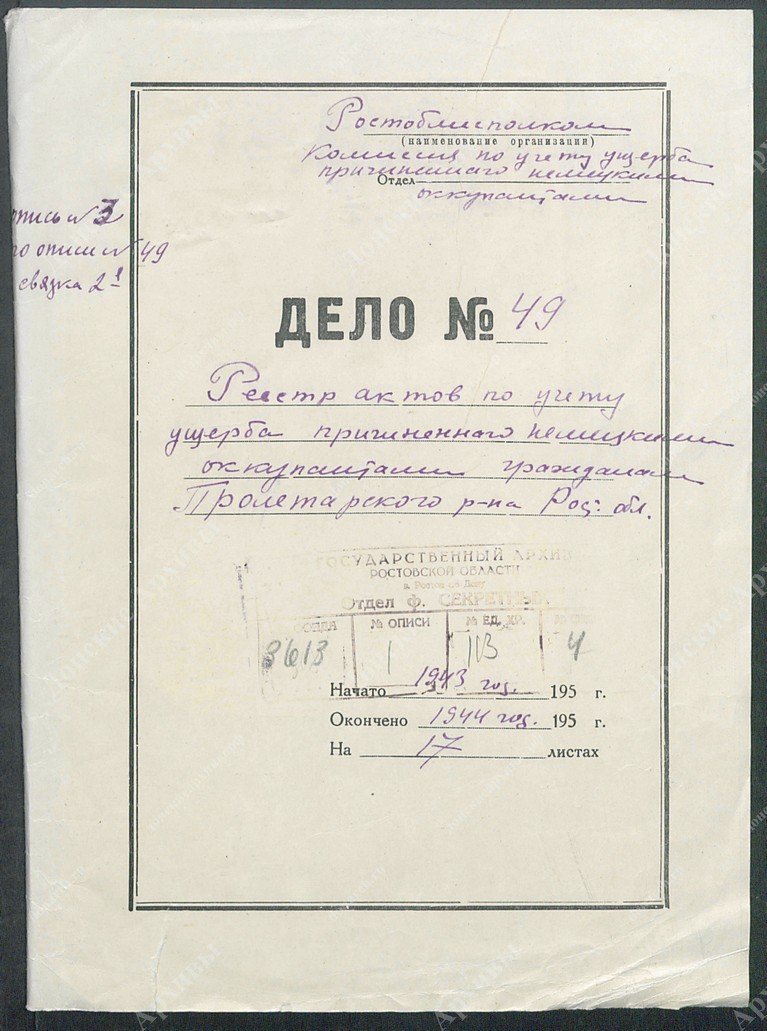 Ростоблисполком
(наименование организации)
Комиссия по учету ущерба
причиненнаго немецкими
Отдел
оккупантами
опись № 3
по описи № 49
связка 2
ДЕЛО № 49
Реестр актов по учету
ущерба причиненнаго немецкими
оккупантами гражданам
Пролетарского р-на Рос. обл.
ГОСУДАРСТВЕННЫЙ АРХИВ
РОСТОВСКОЙ ОБЛАСТИ
г. Ростов на Дону
Отдел ф. СЕКРЕТНЫХ
ФОНДА № ОПИСИ № ЕД. ХР.
3613 1 4
Начато 1943 год. 195 г.
Окончено 1944 год. 195 г.
На 17 листах